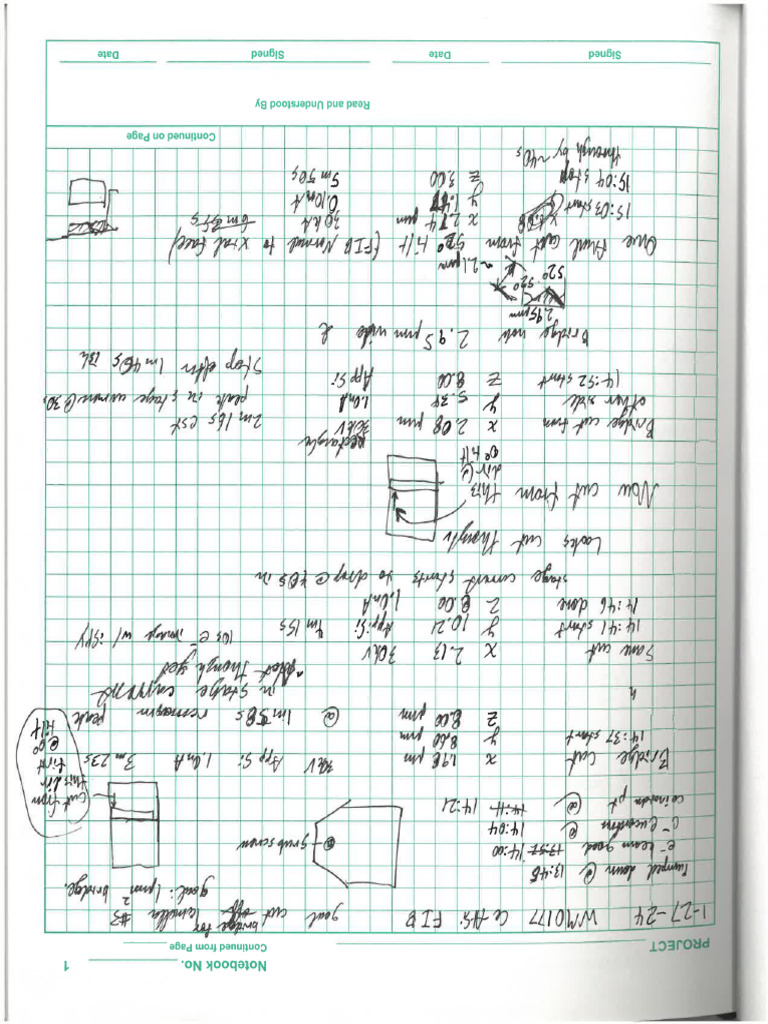 Notebook No.
1
PROJECT
Continued from Page
1-27-24 WM0177 FIB goal cut off lamella #3
bridge for
goal: 1µm² bridge.
Pumped down @ 13:45
e⁻ beam good 13:57 14:00
e⁻ @ 14:04
coincident pt @ 14:11 14:21
grub screw
cut from
this dir
first
@ 0°
tilt
Bridge cut x 1.98 µm 30kV App: Si 1.0nA 3m 23s
14:37 start y 8.60 µm
z 8.00 µm @ 1m 58s peak
in stage current
Not through yet
Same cut x 2.13 30kV
14:41 start y 10.21 App: Si 4m 15s 10s e⁻ image w/ iSPI
14:46 done z 8.00 1.0nA
stage current starts to drop @ in
Looks cut through
Now cut from this
dir @
0° tilt
Bridge cut from x 2.08 µm 30kV rectangle
2m 16s est
other side y 5.38 1.0nA peak in stage current @ 30s
14:52 start z 8.00 App Si
Stop after 1m 40s ish
Bridge now 2.95 µm wide
2.95µm
52°
52°
~2.1µm
One final cut from 52° tilt (FIB Normal to xtal face)
15:03 start x 2.14 µm 30kV 6m 35s
15:04 stop y 0.10nA
through by ~40s z 3.00 5m 50s
Continued on Page
Read and Understood By
Signed
Date
Signed
Date